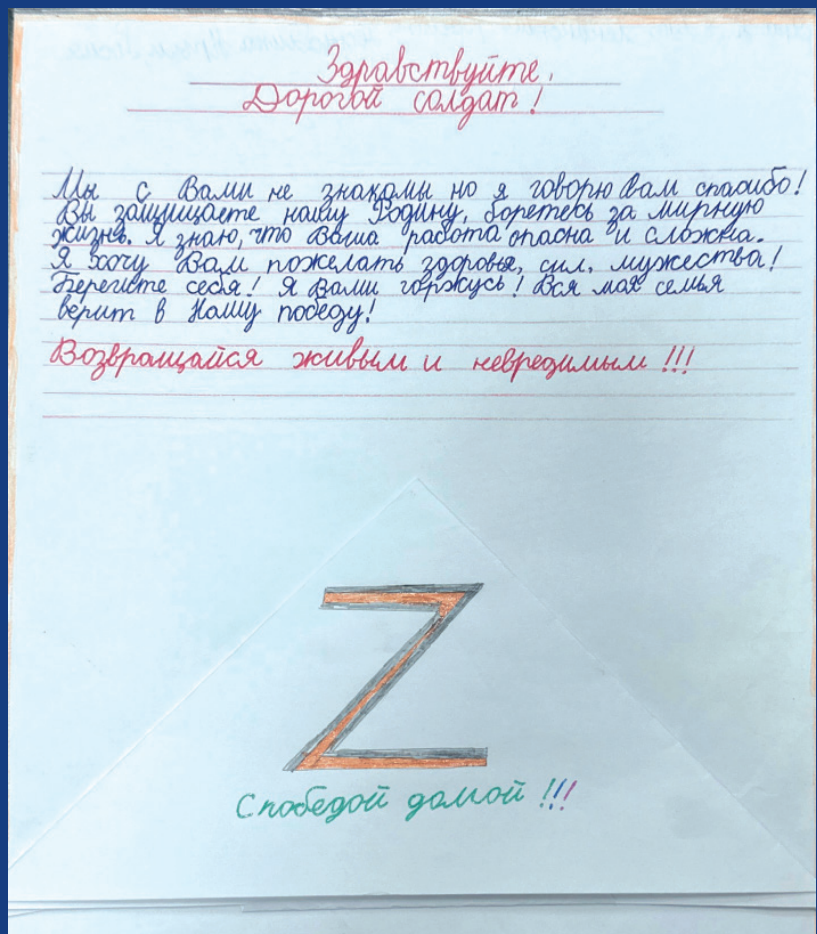 Здравствуйте,
Дорогой солдат!
Мы с Вами не знакомы но я говорю Вам спасибо!
Вы защищаете нашу Родину, боретесь за мирную
жизнь. Я знаю, что Ваша работа опасна и сложна.
Я хочу Вам пожелать здоровья, сил, мужества!
Берегите себя! Я Вами горжусь! Вся моя семья
верит в Нашу победу!
Возвращайся живым и невредимым!!!
Z
С победой домой!!!